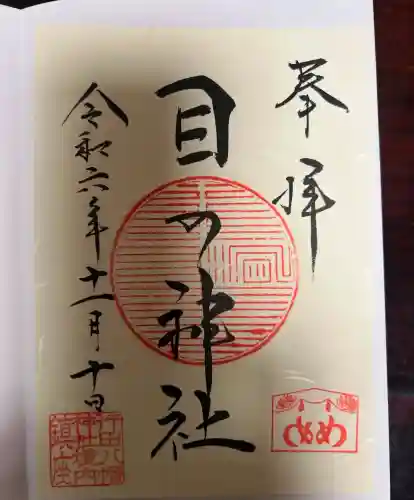 奉拝
目の神社
令和六年十一月十日
めめ